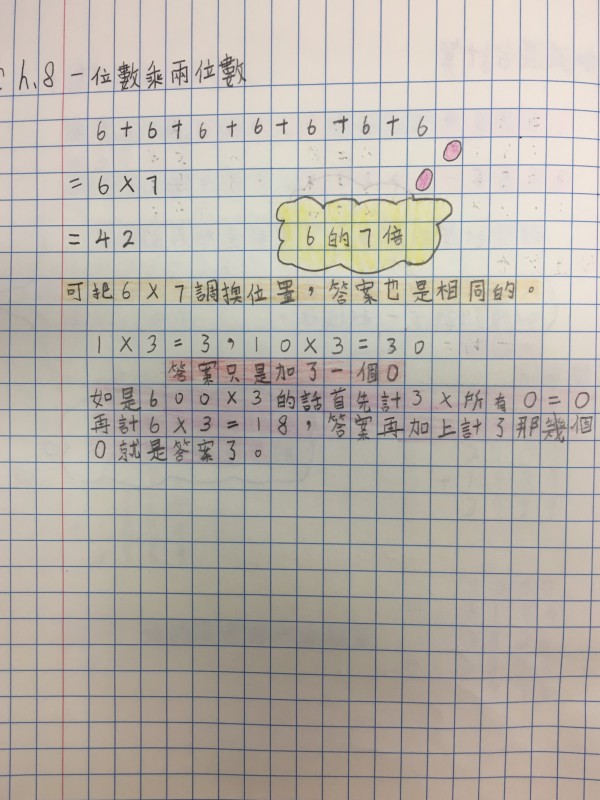 Ch.8 一位數乘兩位數
6+6+6+6+6+6+6
=6×7
=42
6的7倍
可把6×7調換位置，答案也是相同的。
1×3=3，10×3=30
答案只是加了一個0
如是600×3的話首先計3×所有0=0
再計6×3=18，答案再加上計了那幾個
0就是答案了。